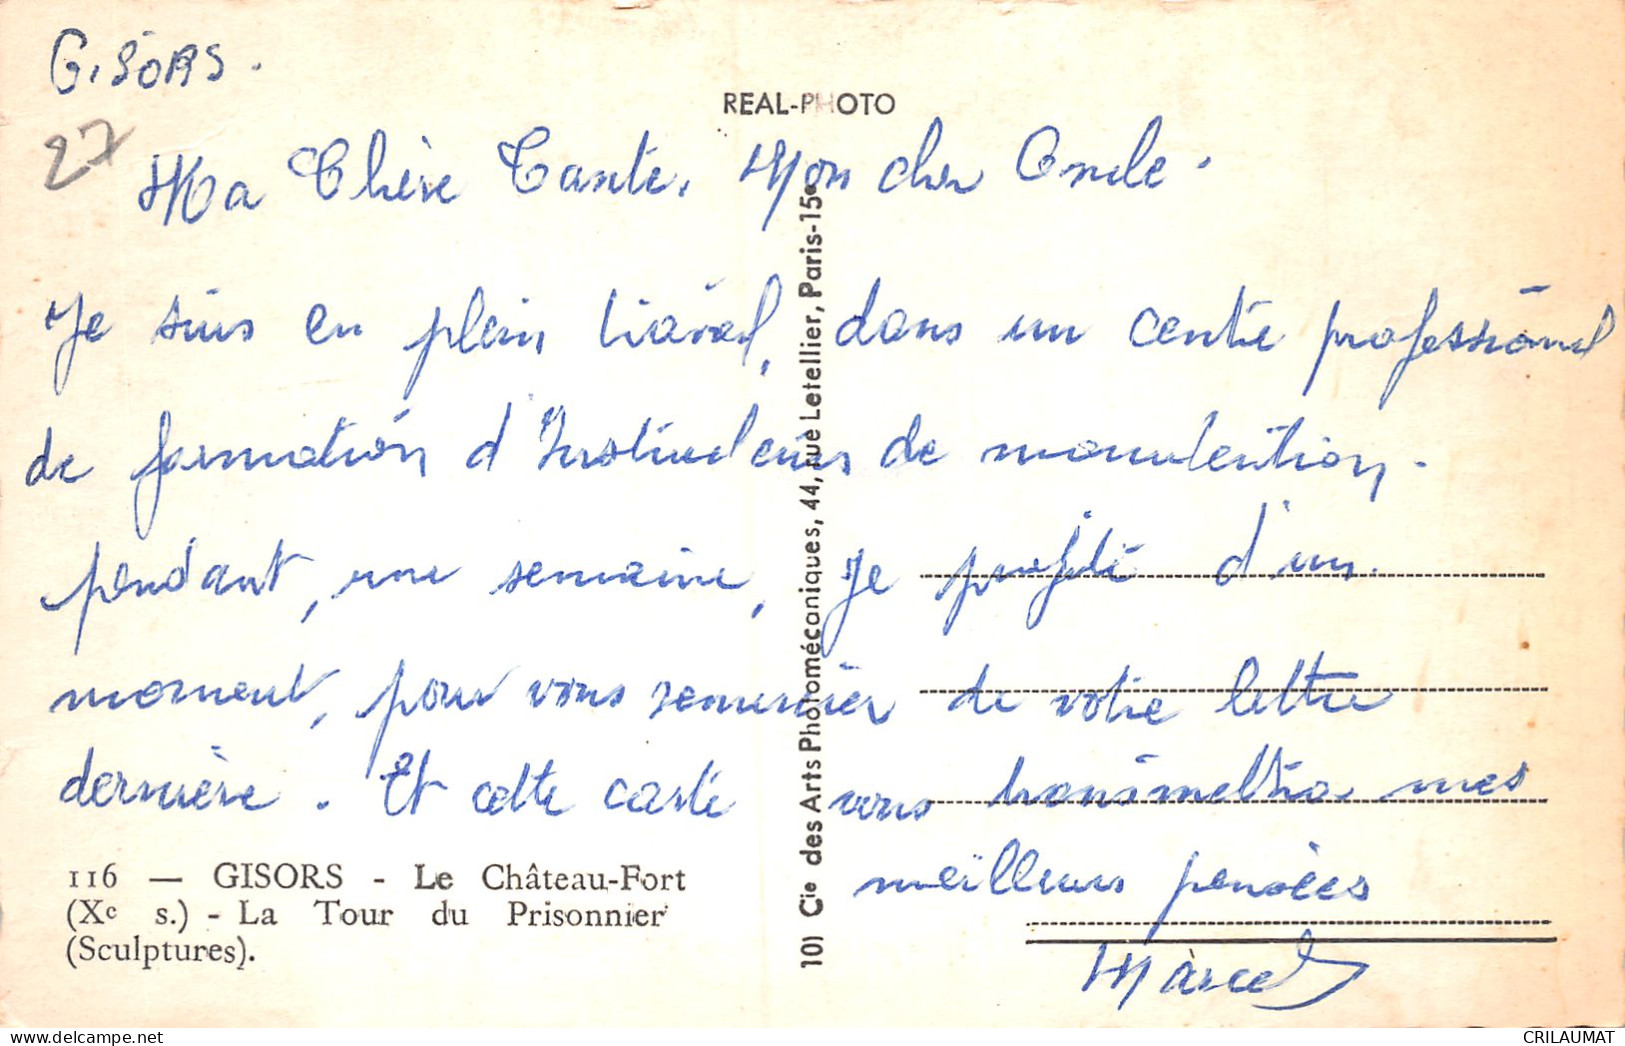 GISORS.
27
REAL-PHOTO
Ma Chère Tante, Mon cher Oncle.
Je suis en plein travail, dans un centre professionnel
de formation d'Instructeurs de manutention.
pendant, une semaine, Je profite d'un
moment, pour vous remercier de votre lettre
dernière. Et cette carte vous transmettra mes
meilleurs pensées
Marcel
116 — GISORS - Le Château-Fort
(Xe s.) - La Tour du Prisonnier
(Sculptures).
101 Cie des Arts Photomécaniques, 44, rue Letellier, Paris-15e
CRILAUMAT